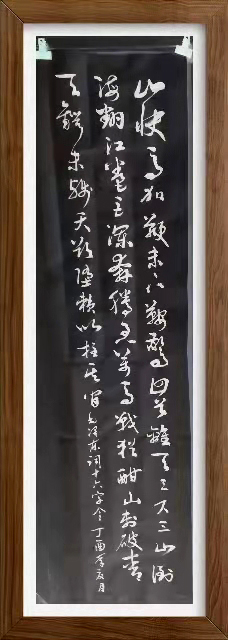 山快马加鞭未下鞍驚回首離天三尺三山倒
海翻江卷巨瀾奔騰急萬马戰猶酣山刺破青
天鍔未殘天欲墮賴以柱其间毛泽东詞十六字令丁酉年夏月